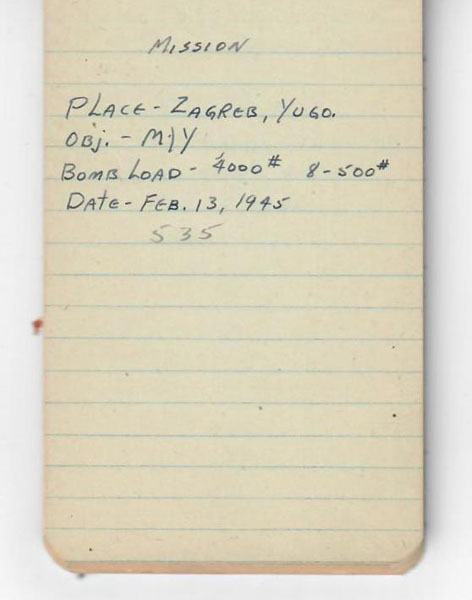 MISSION
PLACE - ZAGREB, YUGO.
OBJ. - M/Y
BOMB LOAD - 4000# 8-500#
DATE - FEB. 13, 1945
535